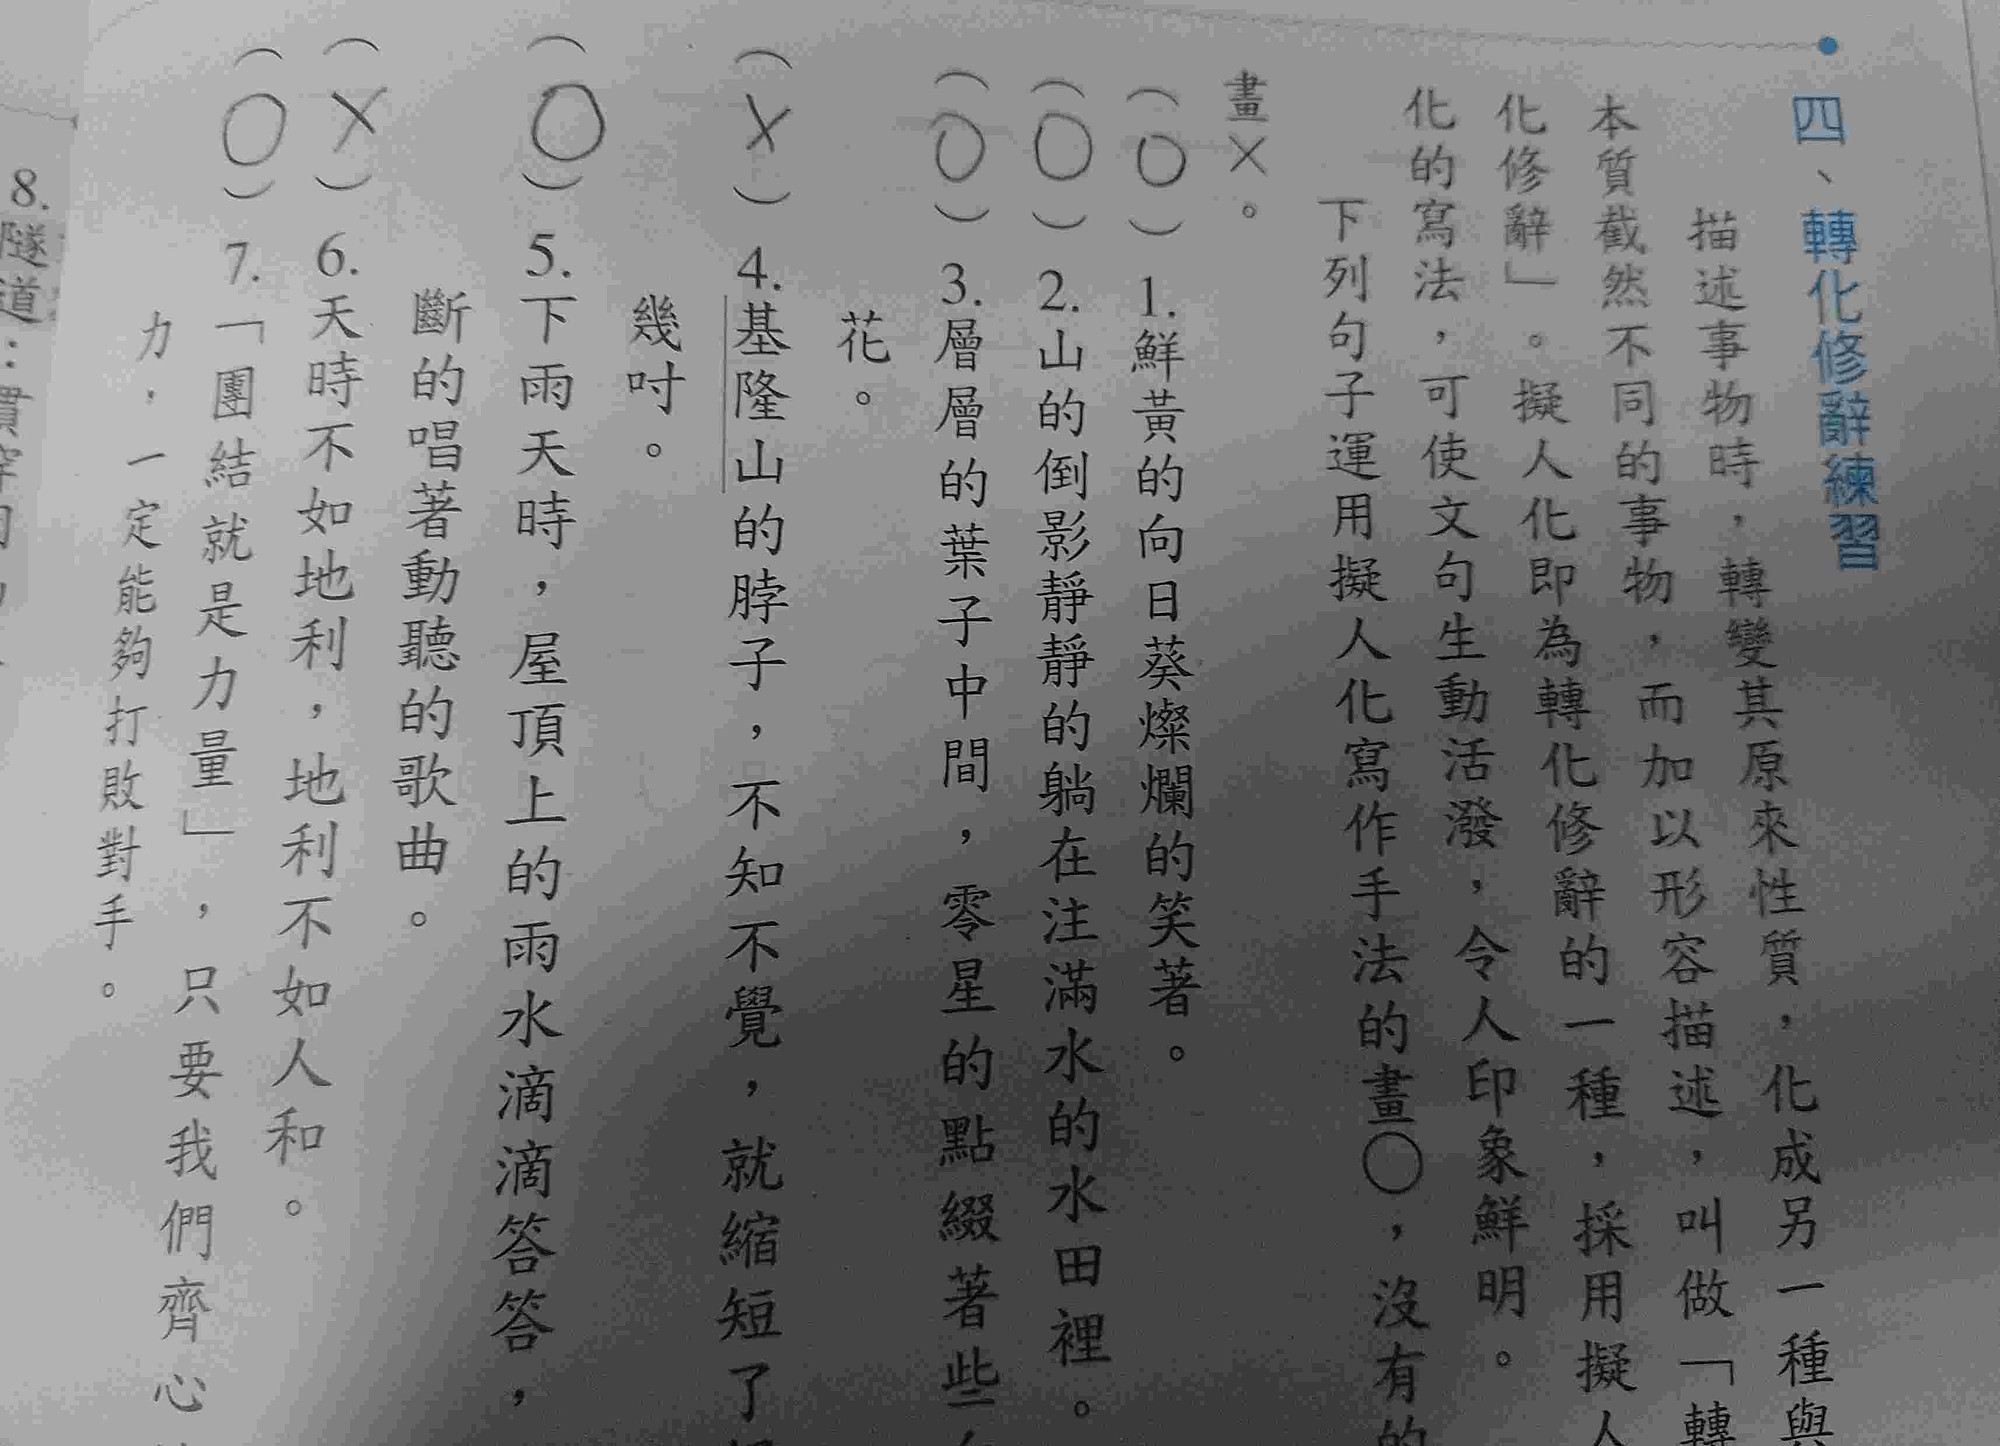 四、轉化修辭練習
描述事物時，轉變其原來性質，化成另一種與
本質截然不同的事物，而加以形容描述，叫做「轉
化修辭」。擬人化即為轉化修辭的一種，採用擬人
化的寫法，可使文句生動活潑，令人印象鮮明。
下列句子運用擬人化寫作手法的畫○，沒有的
畫×。
（○）1.鮮黃的向日葵燦爛的笑著。
（○）2.山的倒影靜靜的躺在注滿水的水田裡。
（○）3.層層的葉子中間，零星的點綴著些
花。
（×）4.基隆山的脖子，不知不覺，就縮短了
幾吋。
（○）5.下雨天時，屋頂上的雨水滴滴答答，
斷的唱著動聽的歌曲。
（×）6.天時不如地利，地利不如人和。
（○）7.「團結就是力量」，只要我們齊心
力，一定能夠打敗對手。
8.隧道：貫穿